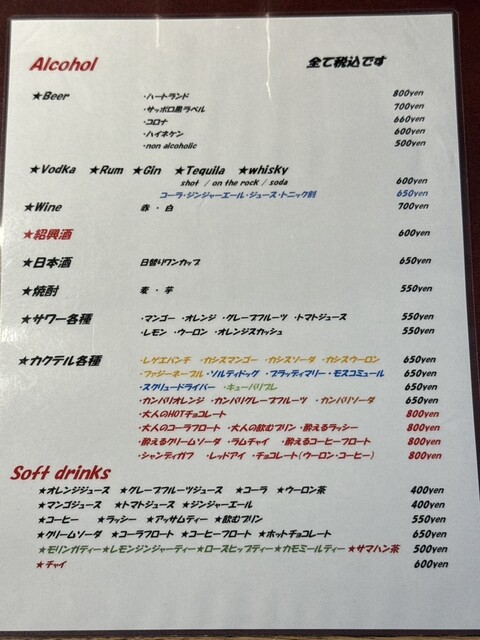 Alcohol 全て税込です
★Beer ・ハートランド 800yen
・サッポロ黒ラベル 700yen
・コロナ 660yen
・ハイネケン 600yen
・non alcoholic 500yen
★Vodka ★Rum ★Gin ★Tequila ★whisky
shot / on the rock / soda 600yen
コーラ・ジンジャーエール・ジュース・トニック割 650yen
★Wine 赤 ・ 白 700yen
★紹興酒 600yen
★日本酒 日替りワンカップ 650yen
★焼酎 麦 ・ 芋 550yen
★サワー各種 ・マンゴー ・オレンジ ・グレープフルーツ ・トマトジュース 550yen
・レモン ・ウーロン ・オレンジスカッシュ 550yen
★カクテル各種 ・レゲエパンチ ・カシスマンゴー ・カシスソーダ ・カシスウーロン 650yen
・ファジーネーブル・ソルティドッグ ・ブラッディマリー・モスコミュール 650yen
・スクリュードライバー ・キューバリブレ 650yen
・カンパリオレンジ ・カンパリグレープフルーツ ・カンパリソーダ 650yen
・大人のHOTチョコレート 800yen
・大人のコーラフロート ・大人の飲むプリン・酔えるラッシー 800yen
・酔えるクリームソーダ ・ラムチャイ ・酔えるコーヒーフロート 800yen
・シャンディガフ ・レッドアイ ・チョコレート(ウーロン・コーヒー) 800yen
Soft drinks
★オレンジジュース ★グレープフルーツジュース ★コーラ ★ウーロン茶 400yen
★マンゴジュース ★トマトジュース ★ジンジャーエール 400yen
★コーヒー ★ラッシー ★アッサムティー ★飲むプリン 550yen
★クリームソーダ ★コーラフロート ★コーヒーフロート ★ホットチョコレート 650yen
★モリンガティー★レモンジンジャーティー★ローズヒップティー★カモミールティー ★サマハン茶 500yen
★チャイ 600yen